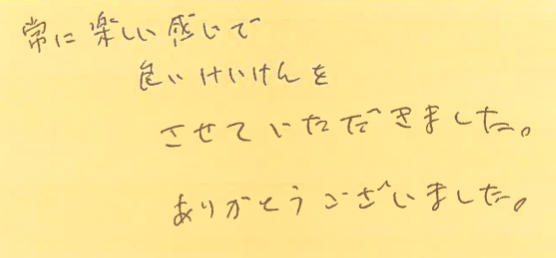 常に楽しい感じで
良いけいけんを
させていただきました。
ありがとうございました。